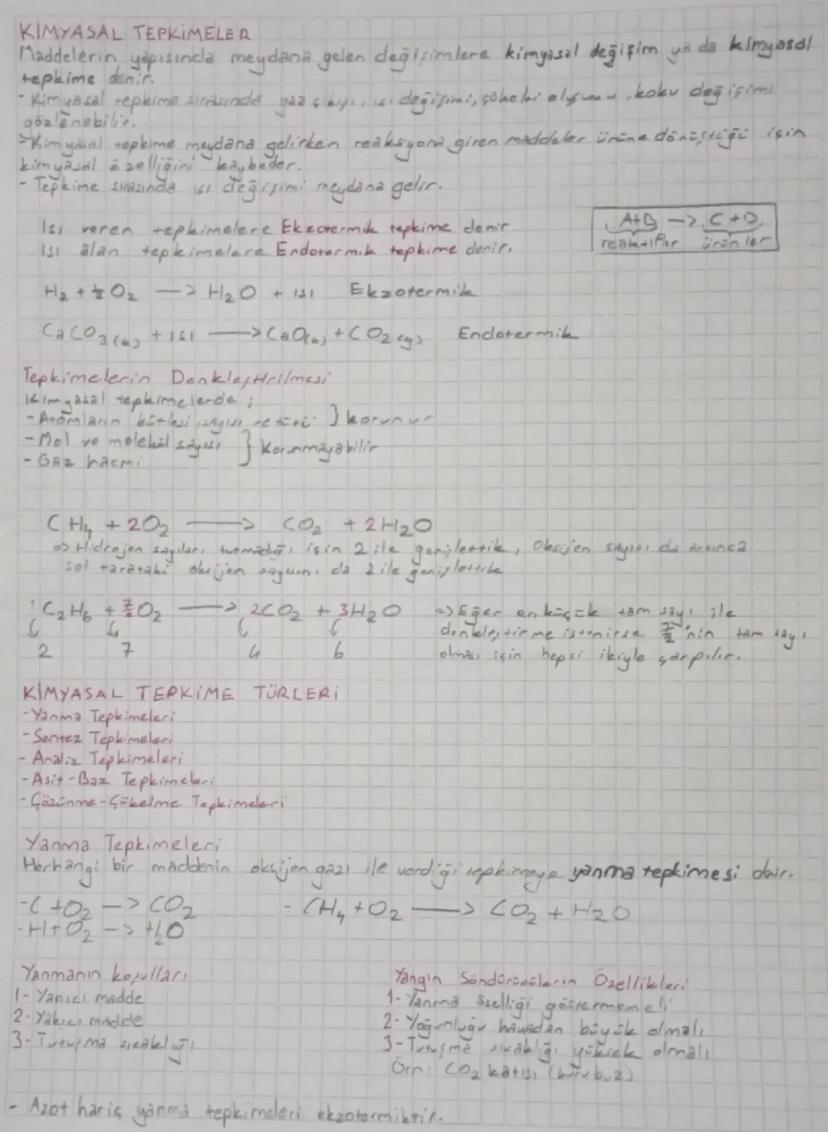 KİMYASAL TEPKİMELER
Maddelerin yapısında meydana gelen değişimlere kimyasal değişim ya da kimyasal
tepkime denir.
- Kimyasal tepkime sırasında gaz çıkışı, ısı değişimi, çökelti oluşumu, koku değişimi
gözlenebilir.
- Kimyasal tepkime meydana gelirken reaksiyona giren maddeler ürüne dönüştüğü için
kimyasal özelliğini kaybeder.
- Tepkime sırasında ısı değişimi meydana gelir.
Isı veren tepkimelere Ekzotermik tepkime denir
Isı alan tepkimelere Endotermik tepkime denir.
A+B -> C+D
reaktifler ürünler
H2 + ½ O2 -> H2O + ısı Ekzotermik
CaCO3(k) + ısı -> CaO(k) + CO2(g) Endotermik
Tepkimelerin Denkleştirilmesi
Kimyasal tepkimelerde;
- Atomların kütlesi, sayısı ve türü } korunur
- Mol ve molekül sayısı } Korunmayabilir
- Gaz hacmi
CH4 + 2O2 -> CO2 + 2H2O
=> Hidrojen sayıları tutmadığı için 2 ile genişlettik, Oksijen sayısı da artınca
sol taraftaki oksijen sayısını da 2 ile genişlettik
1C2H6 + 7/2 O2 -> 2CO2 + 3H2O => Eğer en küçük tam sayı ile
denkleştirme istenirse 7/2'nin tam sayı
2 7 4 6 olması için hepsi ikiyle çarpılır.
KİMYASAL TEPKİME TÜRLERİ
- Yanma Tepkimeleri
- Sentez Tepkimeleri
- Analiz Tepkimeleri
- Asit-Baz Tepkimeleri
- Çözünme-Çökelme Tepkimeleri
Yanma Tepkimeleri
Herhangi bir maddenin oksijen gazı ile verdiği tepkimeye yanma tepkimesi denir.
- C + O2 -> CO2 - CH4 + O2 -> CO2 + H2O
- H + O2 -> H2O
Yanmanın koşulları
1- Yanıcı madde
2- Yakıcı madde
3- Tutuşma sıcaklığı
Yangın Söndürücülerin Özellikleri
1- Yanma özelliği göstermemeli
2- Yoğunluğu havadan büyük olmalı
3- Tutuşma sıcaklığı yüksek olmalı
Örn: CO2 katısı (kuru buz)
- Azot hariç yanma tepkimeleri ekzotermiktir.